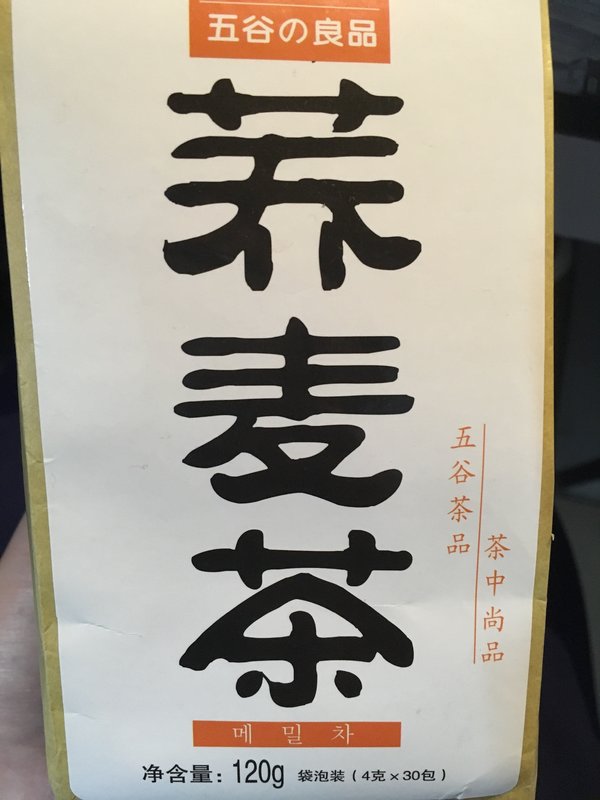 五谷の良品
荞麦茶
五谷茶品
茶中尚品
메밀차
净含量：120g 袋泡装（4克×30包）